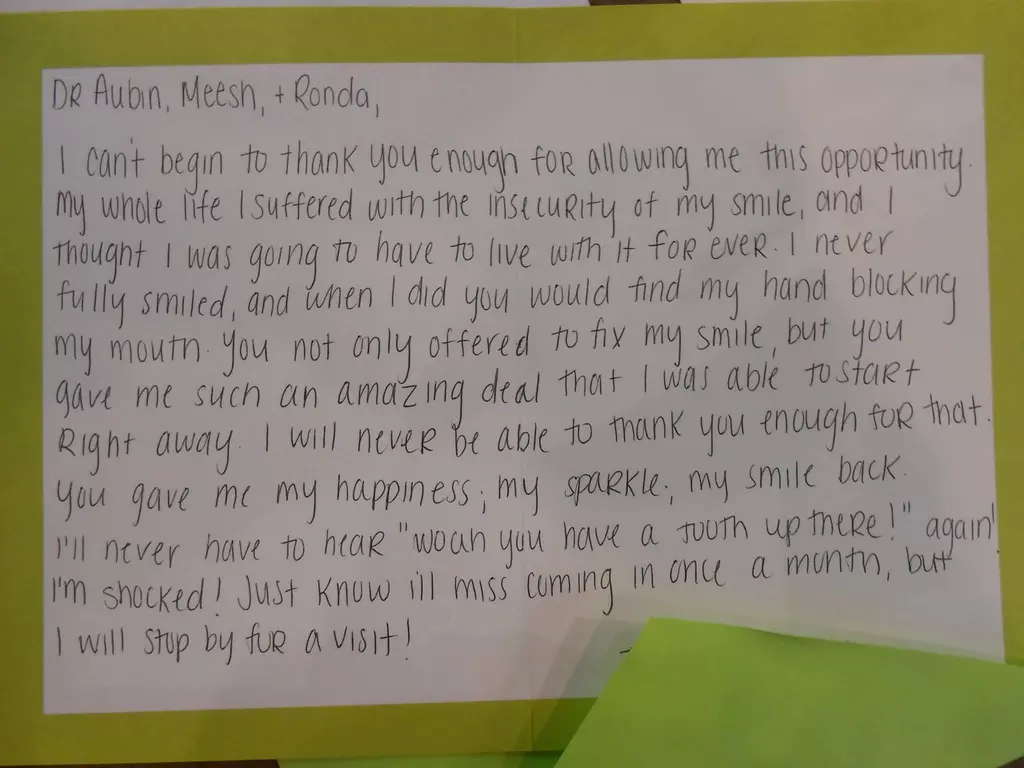 DR Aubin, Meesh, + Ronda,
I can't begin to thank you enough for allowing me this opportunity.
My whole life I suffered with the insecurity of my smile, and I
thought I was going to have to live with it for ever. I never
fully smiled, and when I did you would find my hand blocking
my mouth. You not only offered to fix my smile, but you
gave me such an amazing deal that I was able to start
Right away. I will never be able to thank you enough for that.
You gave me my happiness; my sparkle; my smile back.
I'll never have to hear "woah you have a tooth up there!" again!
I'm shocked! Just know ill miss coming in once a month, but
I will stop by for a visit!